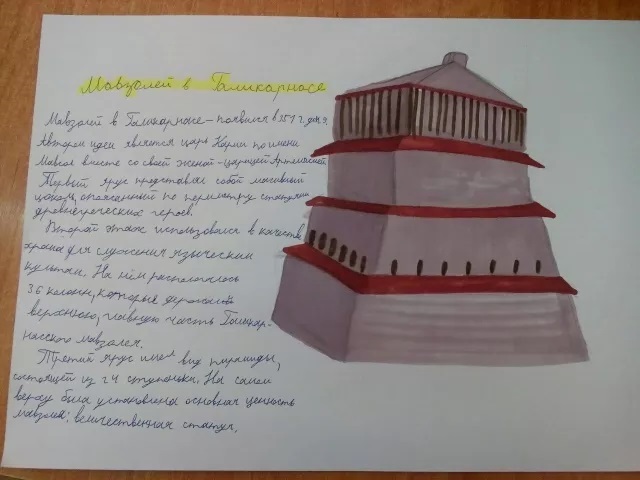 Мавзолей в Галикарнасе
Мавзолей в Галикарнасе - появился в 351 г. до н.э.
Автором идеи является царь Карии по имени
Мавсол вместе со своей женой - царицей Артемисией.
Первый ярус представлял собой массивный
цоколь, опоясанный по периметру статуями
древнегреческих героев.
Второй этаж использовался в качестве
храма для служения языческим
культам. На нём располагалось
36 колонн, которые держали
верхнюю, главную часть Галикар-
насского мавзолея.
Третий ярус имел вид пирамиды,
состоящей из 24 ступеньки. На самом
верху была установлена основная ценность
мавзолея: величественная статуя.